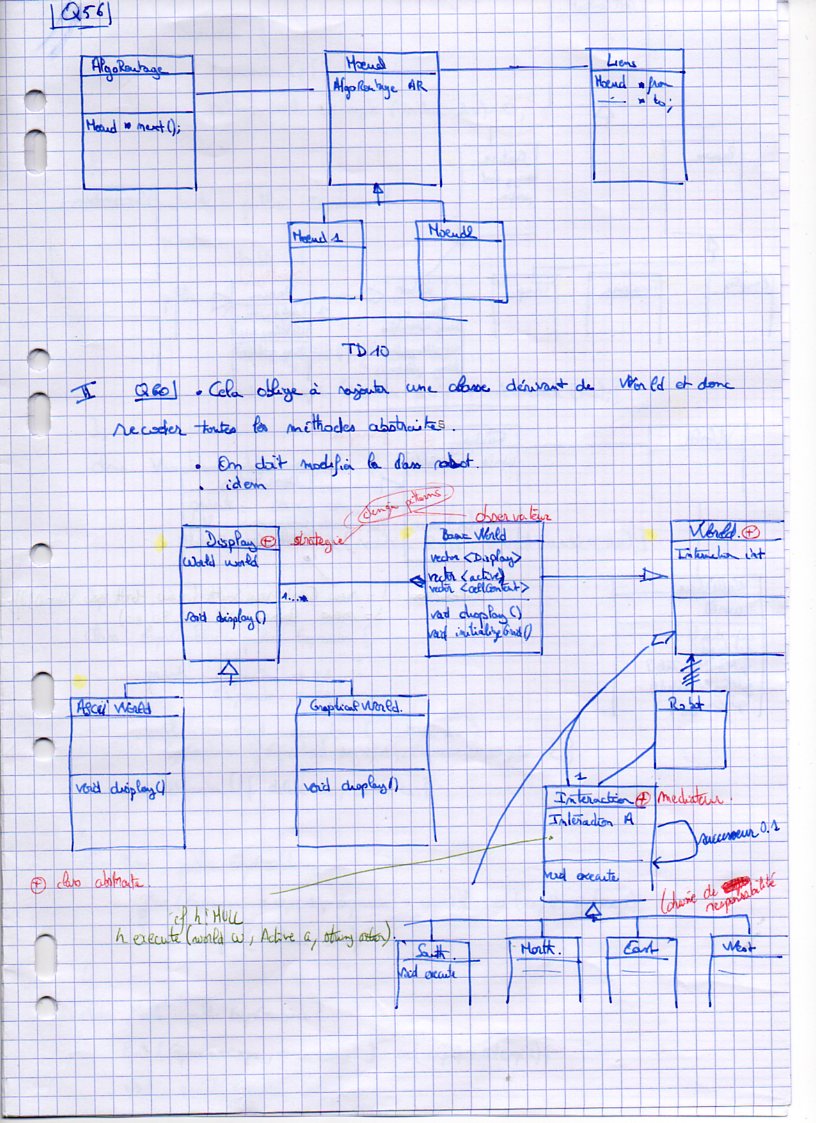 Q56
AlgoRoutage
Noeud * next();
Noeud
AlgoRoutage AR
Liens
Noeud * from
—— * to;
Noeud 1
Noeud2
TD 10
II Q60 • Cela oblige à rajouter une classe dérivant de World et donc
recoder toutes les méthodes abstraites.
• On doit modifier la class robot.
• idem
design patterns
Display + stratégie
World world
void display()
1...*
observateur
Basic World
vector <Display>
vector <active>
vector <cellContent>
void display()
void initializeGrid()
World. +
Interaction int
Ascii World
void display()
Graphical World.
void display()
Robot
1
Interaction + mediateur.
Interaction h
void execute
successeur 0.1
+ class abstraite.
(chaine de responsabilité
if h != NULL
h execute (world w, Active a, string order).
South.
void execute
North.
East
West